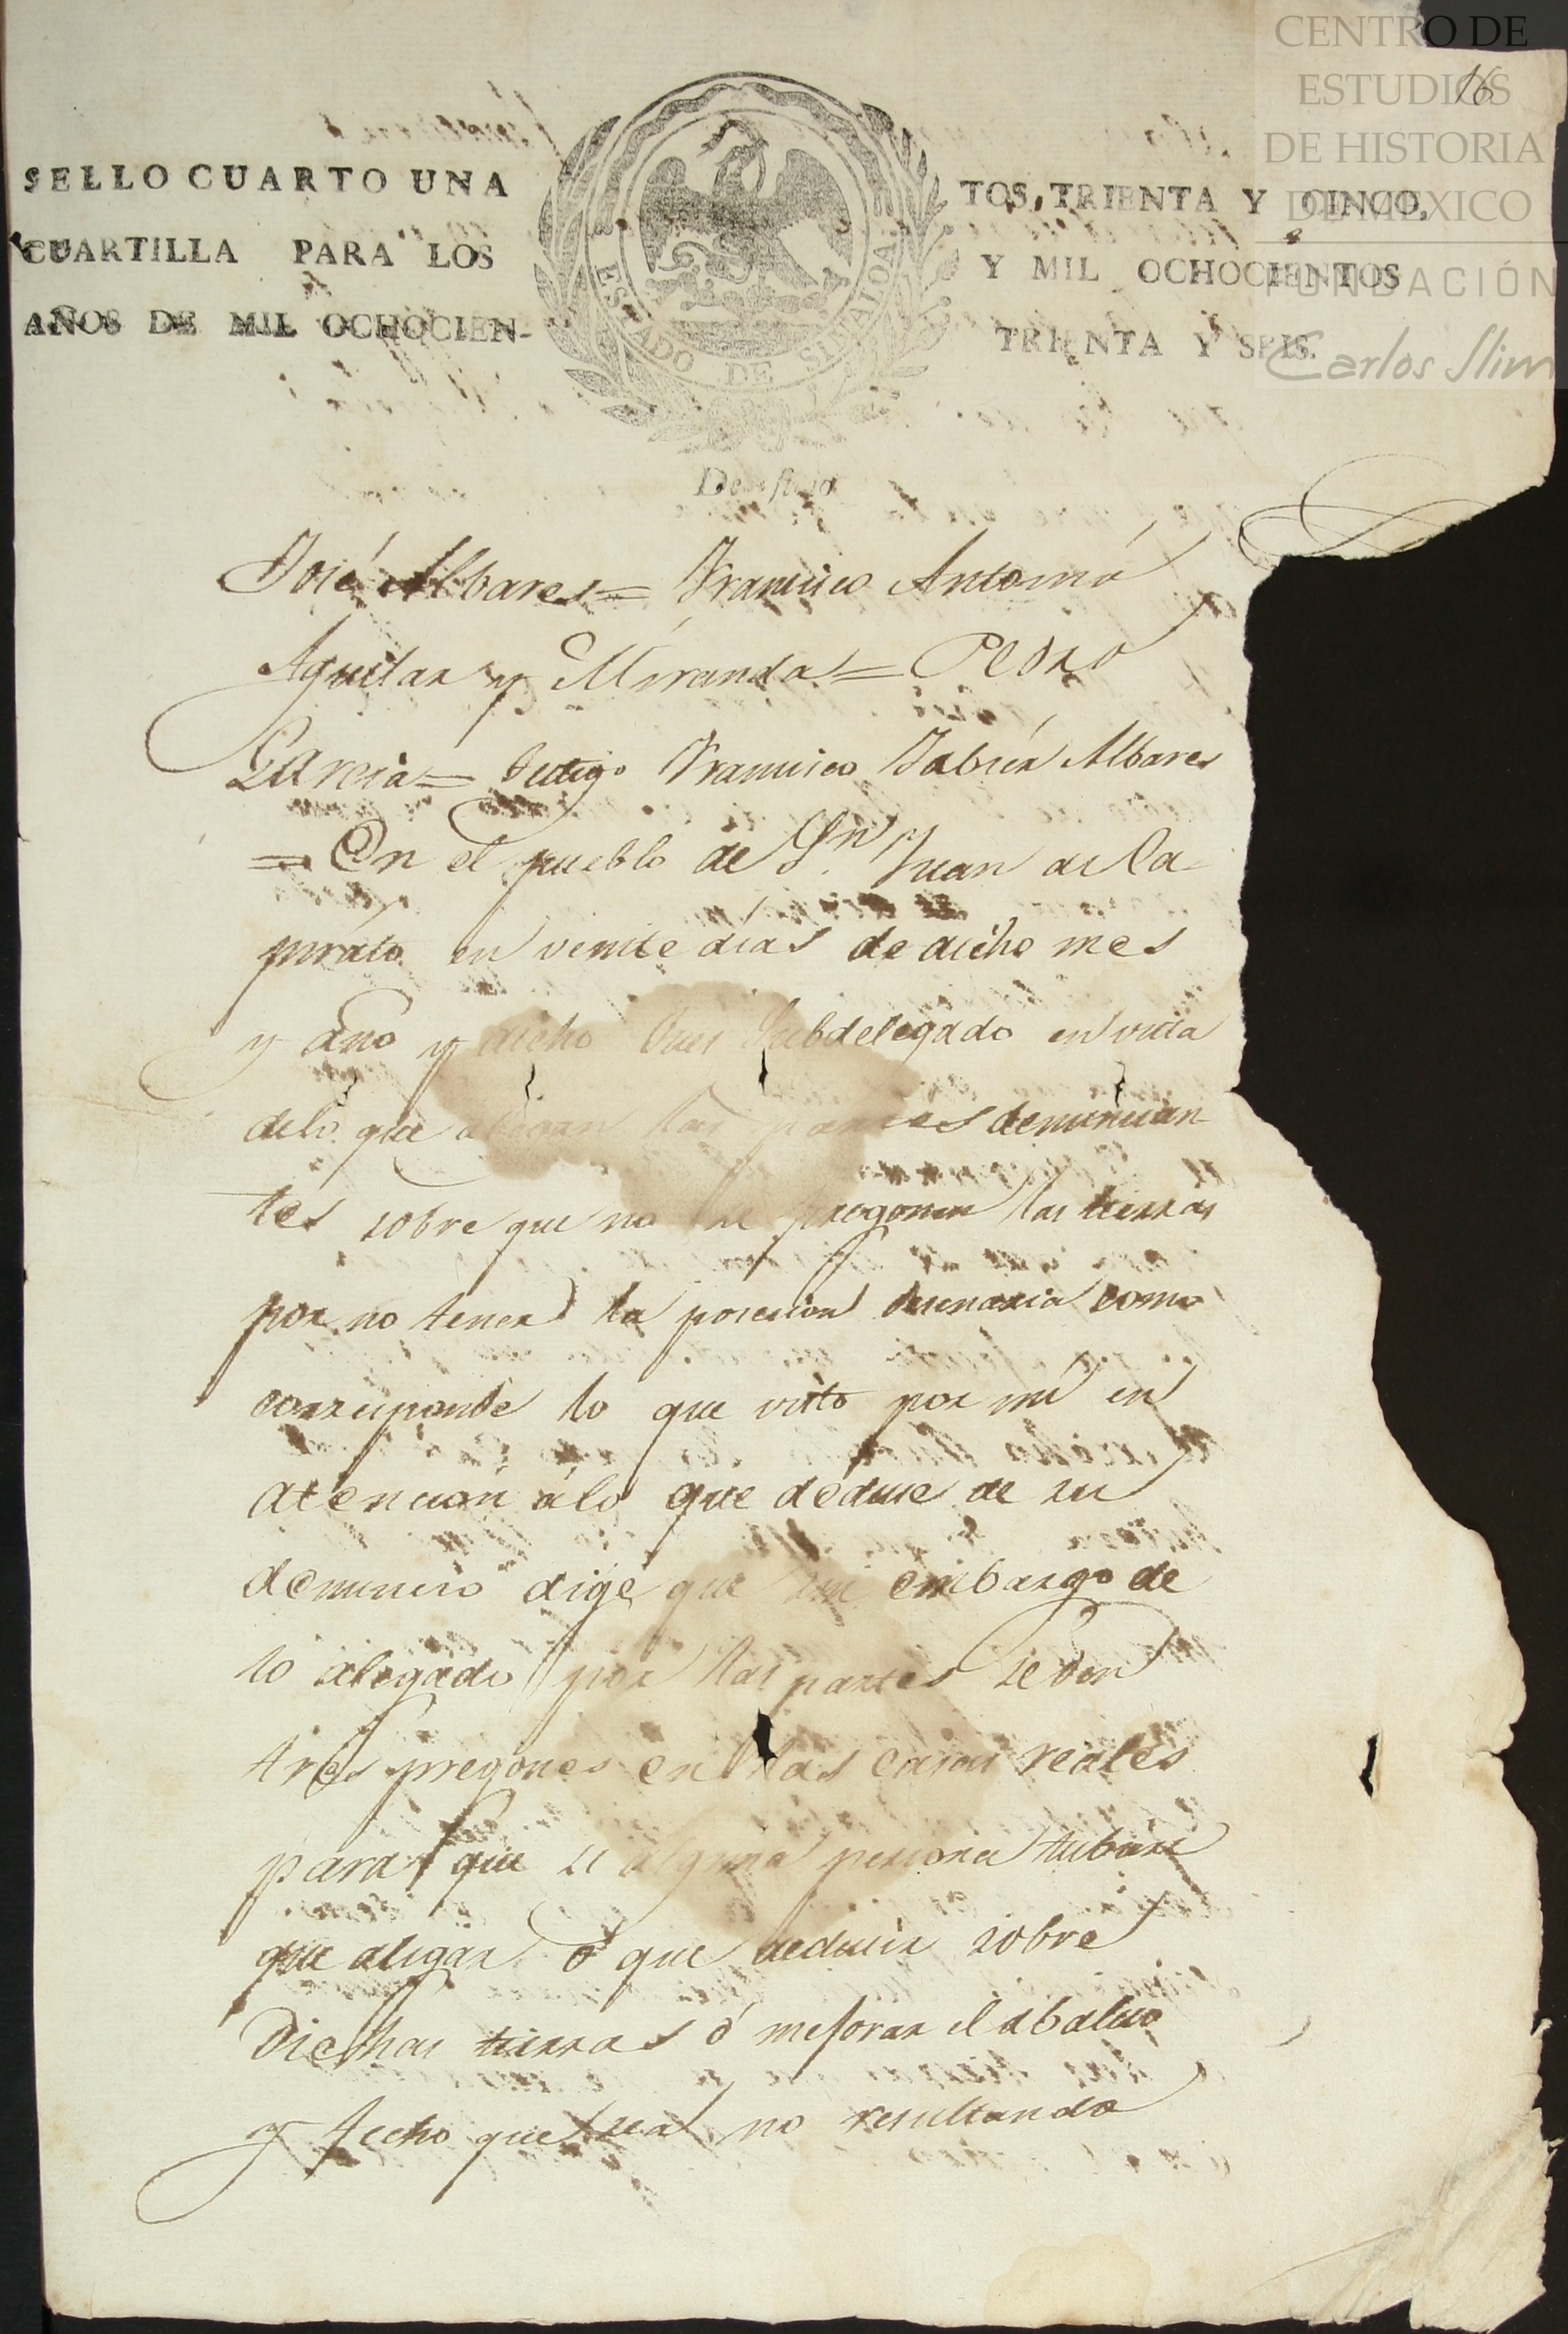 CENTRO DE
ESTUDIOS
DE HISTORIA
DE MÉXICO
FUNDACIÓN
Carlos Slim
16
SELLO CUARTO UNA
CUARTILLA PARA LOS
AÑOS DE MIL OCHOCIEN-
ESTADO DE SINALOA
TOS TRIENTA Y CINCO,
Y MIL OCHOCIENTOS
TRIENTA Y SEIS.
De oficio
José Albares = Francisco Antonio
Aguilar y Miranda = Pedro
Garcia = testigo Francisco Xabier Albares
= En el pueblo de Sn. Juan de Ca-
pirato en veinte días de dicho mes
y año y dicho Juez Subdelegado en vista
delo que alegan las partes denuncian-
tes sobre que no se pregonen las tierras
por no tener la posesion desenaria como
corresponde lo que visto por mí en
atencion álo que deduse de su
denuncio dige que sin embargo de
lo alegado por las partes se den
tres pregones en las casas reales
para que si alguna persona tubiere
que alegar ó que deducir sobre
Dichas tierras ó mejorar el abaluo
y fecho que sea no resultando